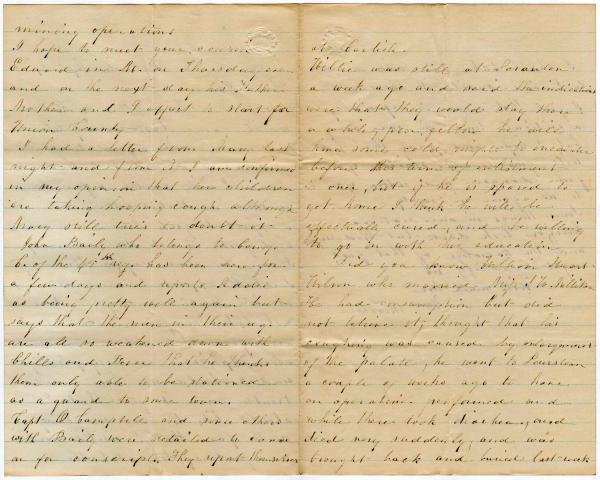 mining operations
I hope to meet your cousin
Edward in on Thursday
and on the next day his Father
Mother and I expect to start for
Union County
I had a letter from Mary last
night and from it I am confirmed
in my opinion that her children
are taking hooping cough although
Mary still tries to doubt it
John Baily who belongs to Comp
C. of the 45th Reg. has been here for
a few days and reports
as being pretty well again but
says that the men in their reg.
are all so weakened down with
Chills and Fever that he thinks
them only able to be stationed
as a guard to some town.
Capt O Campbell and some others
with Baily were detailed to come
on for conscripts. They report themselves
at Carlisle.
Willie was still at Scranton
a week ago and said the indications
were that they would stay there
a while, poor fellow he will
have some cold nights to encounter
before this term of enlistment
is over, but if he is spared to
get home I think he will be
effectually cured, and be willing
to go on with his education
Did you know William Stuart
Wilson who married
He had consumption but did
not believe it, thought that his
coughing was caused by enlargement
of the palate, he went to
a couple of weeks ago to have
an operation performed and
while there took diarhea, and
died very suddenly, and was
brought back and buried last week